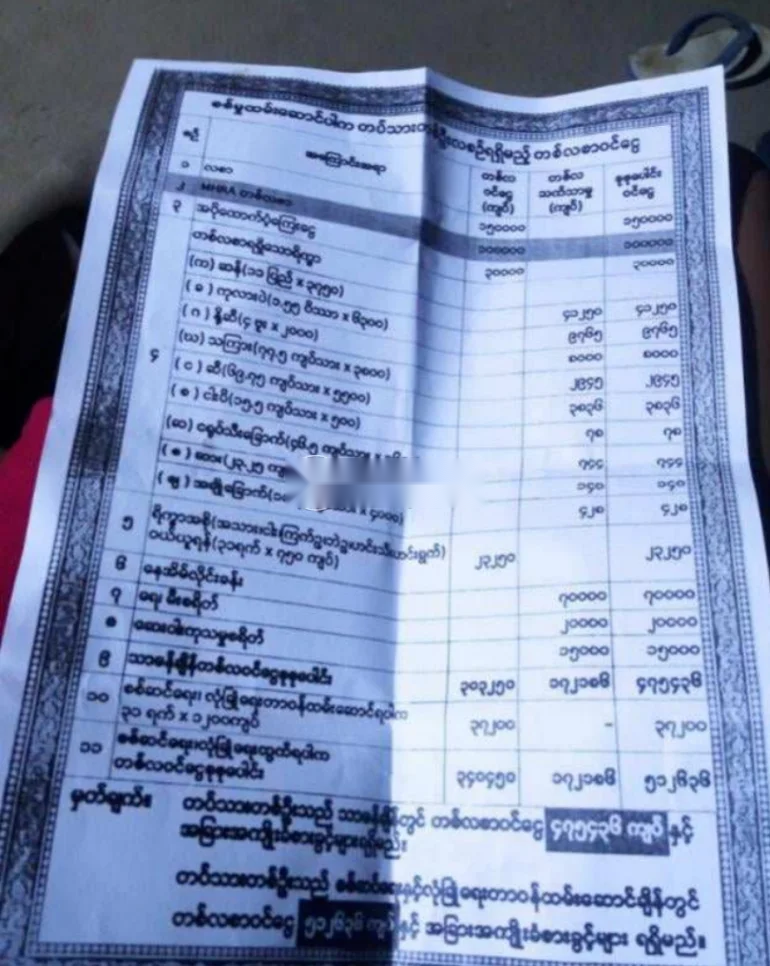 စစ်မှုထမ်းဆောင်ပါက တပ်သားတစ်ဦးလစဉ်ရရှိမည့် တစ်လစာဝင်ငွေ
စဉ် အကြောင်းအရာ တစ်လ ဝင်ငွေ (ကျပ်) တစ်လ သက်သာမှု (ကျပ်) စုစုပေါင်း ဝင်ငွေ
၁ လစာ ၁၅၀၀၀၀ ၁၅၀၀၀၀
၂ တစ်လစာ ၁၀၀၀၀၀ ၁၀၀၀၀၀
၃ အပိုထောက်ပံ့ကြေးငွေ ၃၀၀၀၀ ၃၀၀၀၀
၄ တစ်လစာရရှိသောရိက္ခာ
(က) ဆန်(၁၁ ပြည် x ၃၇၅၀) ၄၁၂၅၀ ၄၁၂၅၀
( ခ ) ကုလားပဲ(၁.၅၅ ပိဿာ x ၆၃၀၀) ၉၇၆၅ ၉၇၆၅
( ဂ ) နို့ဆီ(၄ ဗူး x ၂၀၀၀) ၈၀၀၀ ၈၀၀၀
(ဃ) သကြား(၇၇.၅ ကျပ်သား x ၃၈၀၀) ၂၉၄၅ ၂၉၄၅
( င ) ဆီ(၆၉.၇၅ ကျပ်သား x ၅၅၀၀) ၃၈၃၆ ၃၈၃၆
( စ ) ငါးပိ(၁၅.၅ ကျပ်သား x ၅၀၀) ၇၈ ၇၈
(ဆ) ငရုပ်သီးခြောက်(၄၆.၅ ကျပ်သား x ၇၄၄ ၇၄၄
( ဇ ) ဆား(၂၃.၂၅ ၁၄၀ ၁၄၀
( ဈ ) အချိုခြောက် x ၄၀၀၀) ၄၂၈ ၄၂၈
၅ ရိက္ခာအစို(အသား၊ငါး၊ကြက်ဥ၊ဘဲဥ၊ဟင်းသီးဟင်းရွက်)
ဝယ်ယူရန်(၃၁ရက် x ၇၅၀ ကျပ်) ၂၃၂၅၀ ၂၃၂၅၀
၆ နေအိမ်လိုင်းခန်း ၇၀၀၀၀ ၇၀၀၀၀
၇ ရေ၊ မီးစရိတ် ၂၀၀၀၀ ၂၀၀၀၀
၈ ဆေးဝါးကုသမှုစရိတ် ၁၅၀၀၀ ၁၅၀၀၀
၉ သာမန်ချိန်တစ်လဝင်ငွေစုစုပေါင်း ၃၀၃၂၅၀ ၁၇၂၁၈၆ ၄၇၅၄၃၆
၁၀ စစ်ဆင်ရေး၊ လုံခြုံရေးတာဝန်ထမ်းဆောင်ရပါက
၃၁ ရက် x ၁၂၀၀ကျပ် ၃၇၂၀၀ - ၃၇၂၀၀
၁၁ စစ်ဆင်ရေး၊လုံခြုံရေးထွက်ရပါက
တစ်လဝင်ငွေစုစုပေါင်း ၃၄၀၄၅၀ ၁၇၂၁၈၆ ၅၁၂၆၃၆
မှတ်ချက်။ တပ်သားတစ်ဦးသည် သာမန်ချိန်တွင် တစ်လစာဝင်ငွေ ၄၇၅၄၃၆ ကျပ် နှင့်
အခြားအကျိုးခံစားခွင့်များရရှိမည်။
တပ်သားတစ်ဦးသည် စစ်ဆင်ရေးနှင့်လုံခြုံရေးတာဝန်ထမ်းဆောင်ချိန်တွင်
တစ်လစာဝင်ငွေ ၅၁၂၆၃၆ ကျပ် နှင့် အခြားအကျိုးခံစားခွင့်များ ရရှိမည်။